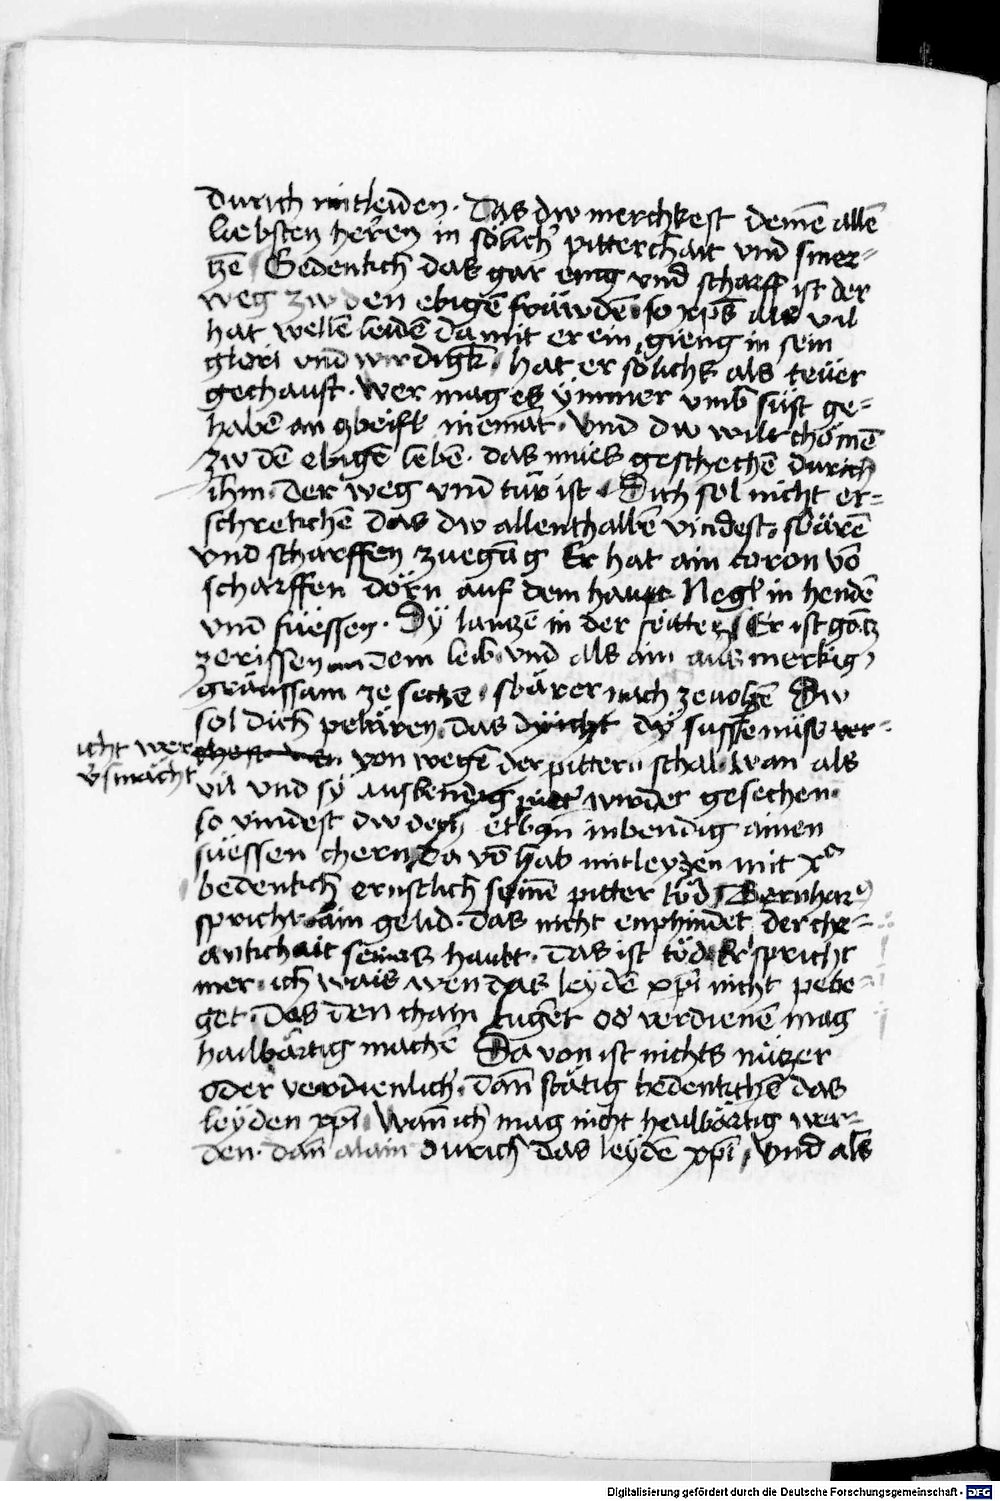 durich mitleiden. Das dw merchkest deinē allē
liebsten herren in sölicher pitterchait vnd smer=
tzē Gedenkch das gar eng vnd scharff ist der
weg zw den ebigē fräwdē so xp̄s als vil
hat wellē leidē damit er ein gieng in sein
glori vnd wirdigk. hat er sölichs als teüer
gechauft. wer mag es ymmer vmb süst ge=
habē an zbeifl niemāt. Vnd dw wilt chömē
zw dē ebigē lebē. das müs geschechē durich
ihm. der weg vnd tür ist. Dich sol nicht er=
schrekchē das dw allenthalbē vindest. sbärē
vnd scharffen zuegāg Er hat ain coron vō
scharffen dörn auf dem haupt Negl in hendē
vnd füessen. Dy lantzē in der seittē Er ist gātz
zerissen an dem leib vnd als ain ausmerkig
gräussam ze sechē. sbärer nach zevolgē Dw
sol dich pebären das dy süsse nüss ver=
icht wer von wegē der pittern schal. wan als
v̄smächt
vil vnd sy auswendig pitter wirdet gesechen.
so vindest dw doch etban inbendig ainen
süessen chern da vō hab mitleyden mit x̄o
bedenkch ernstlich seinē pitter töd Bernhar9
spricht ain gelid. das nicht enphindet der chr=
ankchait seines haubt. das ist töd Er spricht
mer. ich wais wen das leydē xp̄i nicht pebe=
get. Das den chain tugēt od' verdienē mag
hailbärtig machē Da von ist nichts nützer
oder verdienlich. dan̄ stätig bedenkchē das
leyden xp̄i Wan̄ ich mag nicht hailbärtig wer=
den. dan̄ alain durich das leydē xp̄i, Vnd als
Digitalisierung gefördert durch die Deutsche Forschungsgemeinschaft - DFG